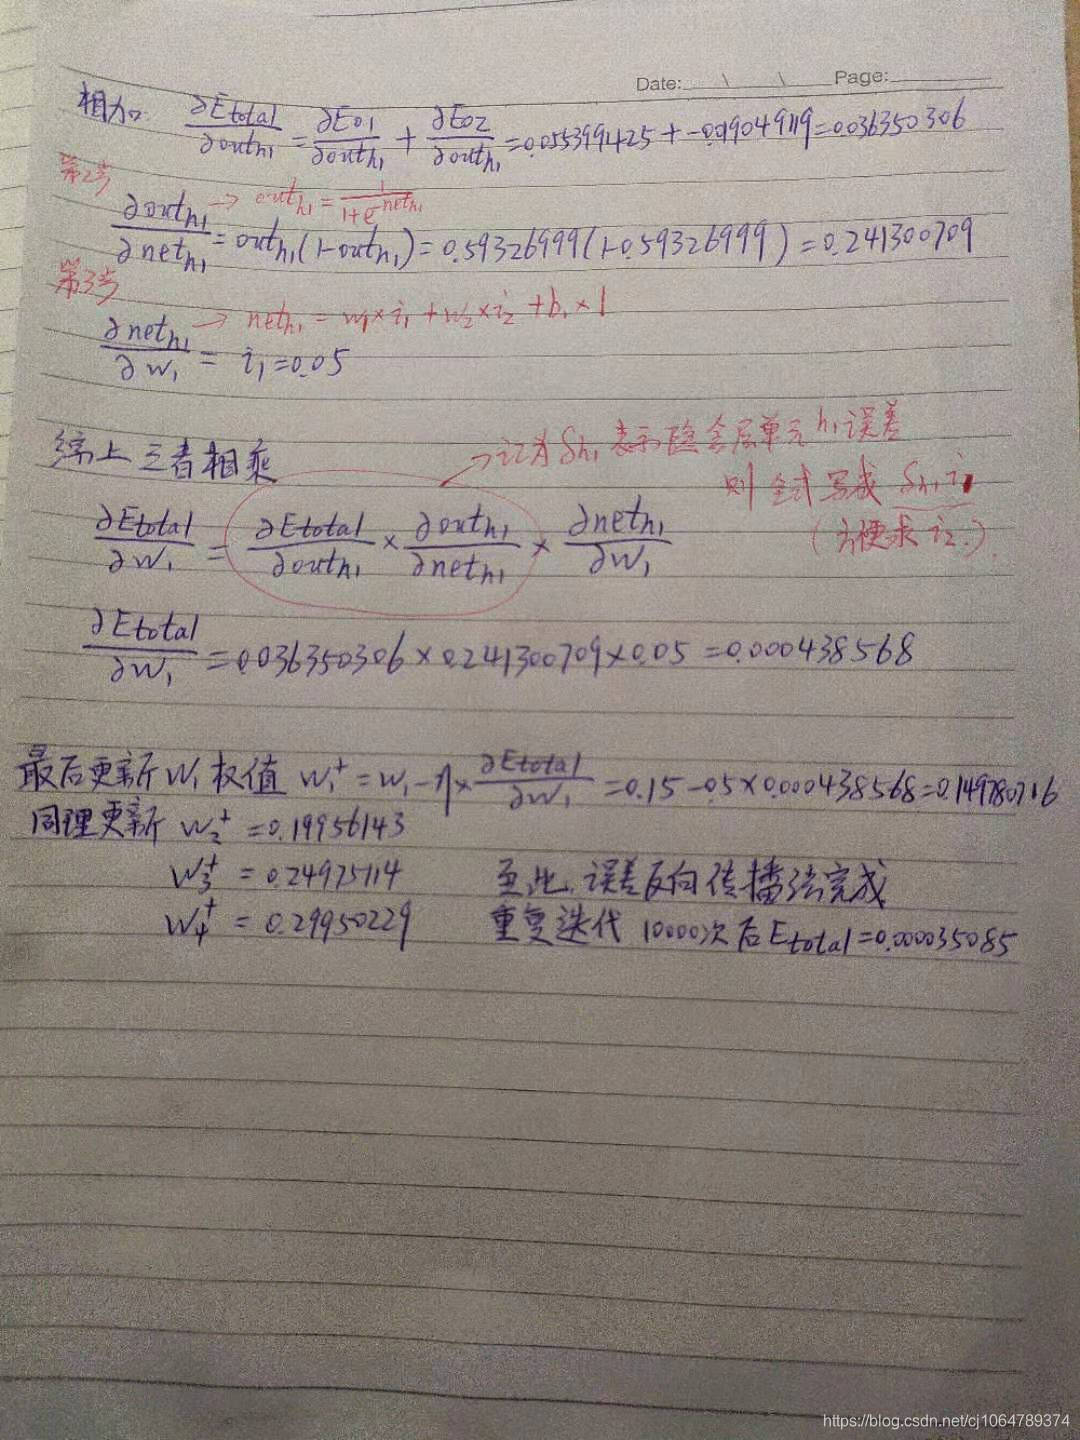 Date: \ \ Page:
相加: ∂Etotal/∂outh1 = ∂Eo1/∂outh1 + ∂Eo2/∂outh1 = 0.055399425 + -0.019049119 = 0.036350306
第2步
∂outh1/∂neth1 → outh1 = 1/(1+e^-neth1)
= outh1(1-outh1) = 0.59326999(1-0.59326999) = 0.241300709
第3步
∂neth1/∂w1 → neth1 = w1×i1 + w2×i2 + b1×1
= i1 = 0.05
综上三者相乘
→记为 δh1 表示隐含层单元h1误差
则全式写成 δh1 i1
(方便求i2.)
∂Etotal/∂w1 = ∂Etotal/∂outh1 × ∂outh1/∂neth1 × ∂neth1/∂w1
∂Etotal/∂w1 = 0.036350306 × 0.241300709 × 0.05 = 0.000438568
最后更新 W1 权值 w1+ = w1 - η × ∂Etotal/∂w1 = 0.15 - 0.5 × 0.000438568 = 0.149780716
同理更新 w2+ = 0.19956143
w3+ = 0.24975114 至此, 误差反向传播法完成
w4+ = 0.29950229 重复迭代 10000次后 Etotal = 0.000035085
https://blog.csdn.net/cj1064789374